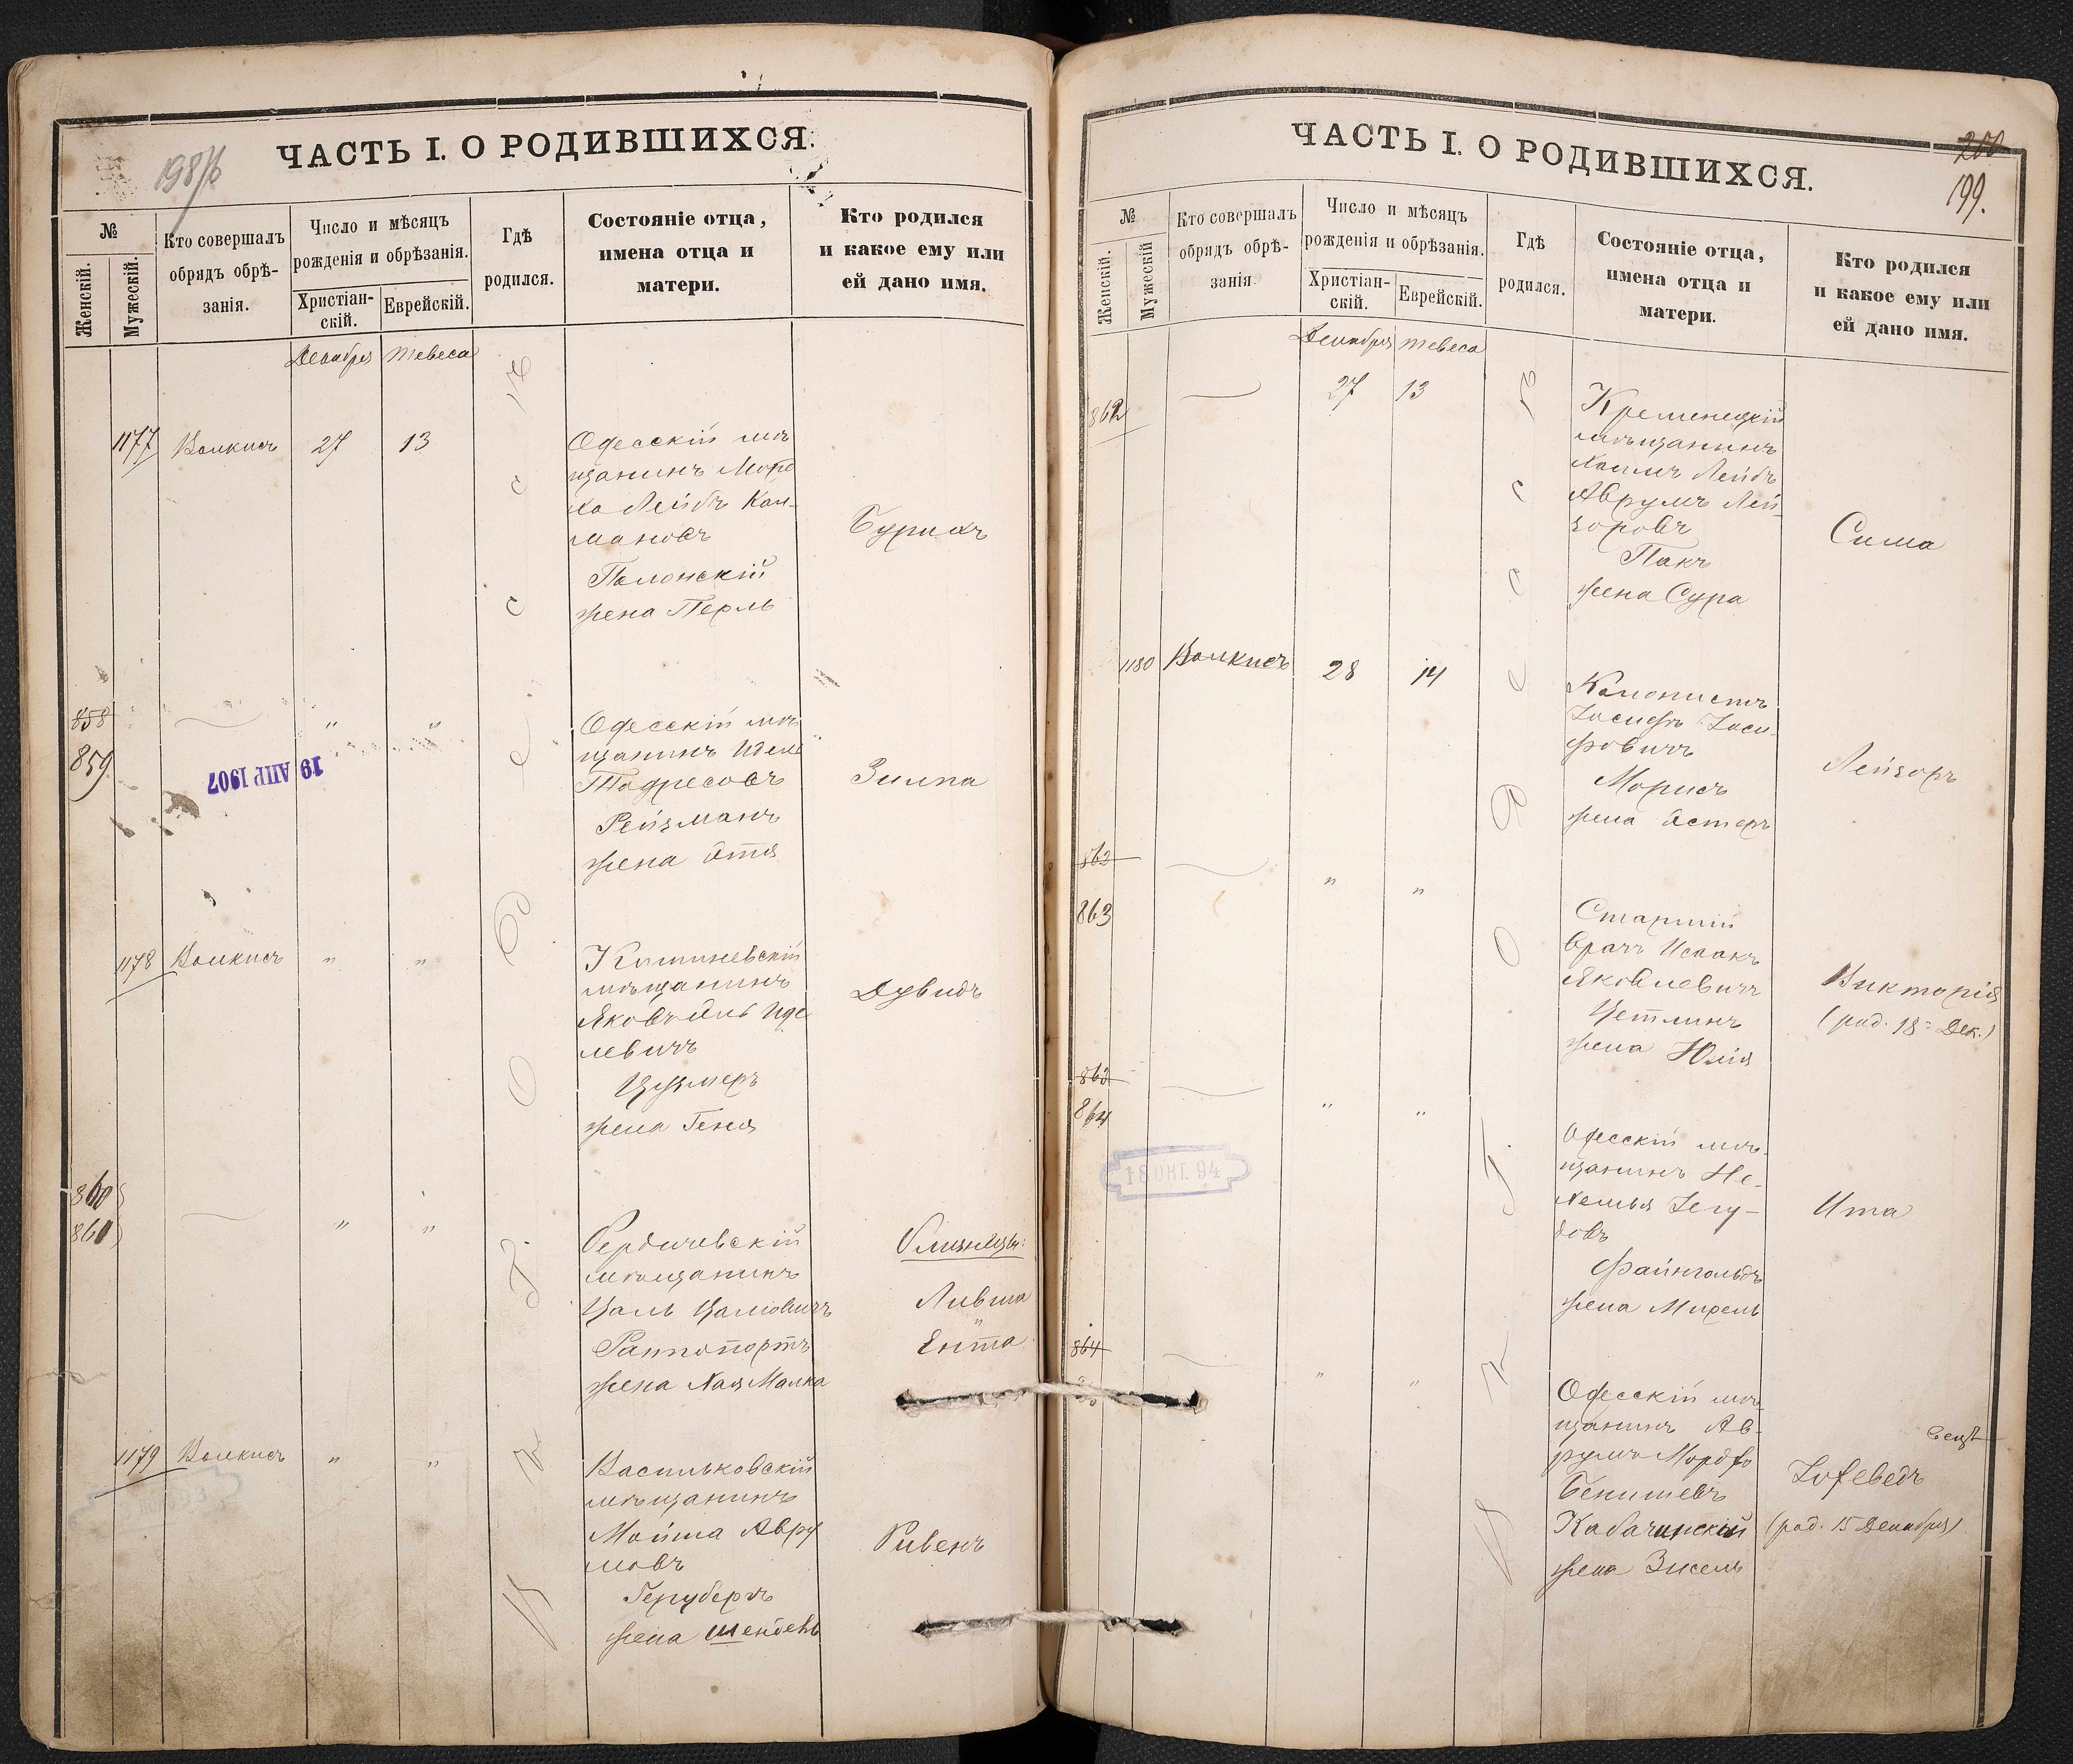 198/б
ЧАСТЬ I. О РОДИВШИХСЯ.
№
Женскій.
Мужескій.
Кто совершалъ
обрядъ обрѣ-
занія.
Число и мѣсяцъ
рожденія и обрѣзанія.
Христіан-
скій.
Еврейскій.
Гдѣ
родился.
Состояніе отца,
имена отца и
матери.
Кто родился
и какое ему или
ей дано имя.
Декабря Тевеса
1177 Волкисъ 27 13
Одесскій мѣ
щанинъ Мордъ
ко Лейбъ Кал-
мановъ
Полонскій
жена Перль
Бурихъ
858 " "
859
19 АПР 1907
Одесскій мѣ
щанинъ Идель
Тодресовъ
Рейзманъ
жена Этя
Зилпа
1178 Волкисъ " "
Кишиневскій
мѣщанинъ
Яковъ Эль Иде
левичъ
жена Геня
Дувидъ
860
861 " "
Бердичевскій
мѣщанинъ
Цаль Цаліовичъ
Раппопортъ
жена Хая Малка
Близнецы:
Ливша
и
Ента
1179 Волкисъ " "
Васильковскій
мѣщанинъ
Мойша Авру
мовъ
жена Шейдель
Рувенъ
ЧАСТЬ I. О РОДИВШИХСЯ.
200
199.
№
Женскій.
Мужескій
Кто совершалъ
обрядъ обрѣ-
занія.
Число и мѣсяцъ
рожденія и обрѣзанія.
Христіан-
скій.
Еврейскій.
Гдѣ
родился.
Состояніе отца,
имена отца и
матери.
Кто родился
и какое ему или
ей дано имя.
Декабря Тевеса
862 27 13
Кременецкій
мѣщанинъ
Хаимъ Лейбъ
Аврумъ Лей-
зоровъ
Пакъ
жена Сура
Сима
1180 Волкисъ 28 14
Колонистъ
Іосифъ Іоси-
фовичъ
Морисъ
жена Эстеръ
Лейзоръ
862 " "
863
Старшій
врачъ Исаакъ
Яковлевичъ
Цетлинъ
жена Юлія
Викторія
(род. 18 Дек.)
863
864 " "
18 ОКТ. 94
Одесскій мѣ-
щанинъ Не-
хемья Іегу-
довъ
Файнгольдъ
жена Михель
Ита
864 " "
Одесскій мѣ-
щанинъ Ав-
румъ Мордко
Бенишевъ
Кабачинскій
жена Зисель
Іохеведъ
(род. 15 Декабря)